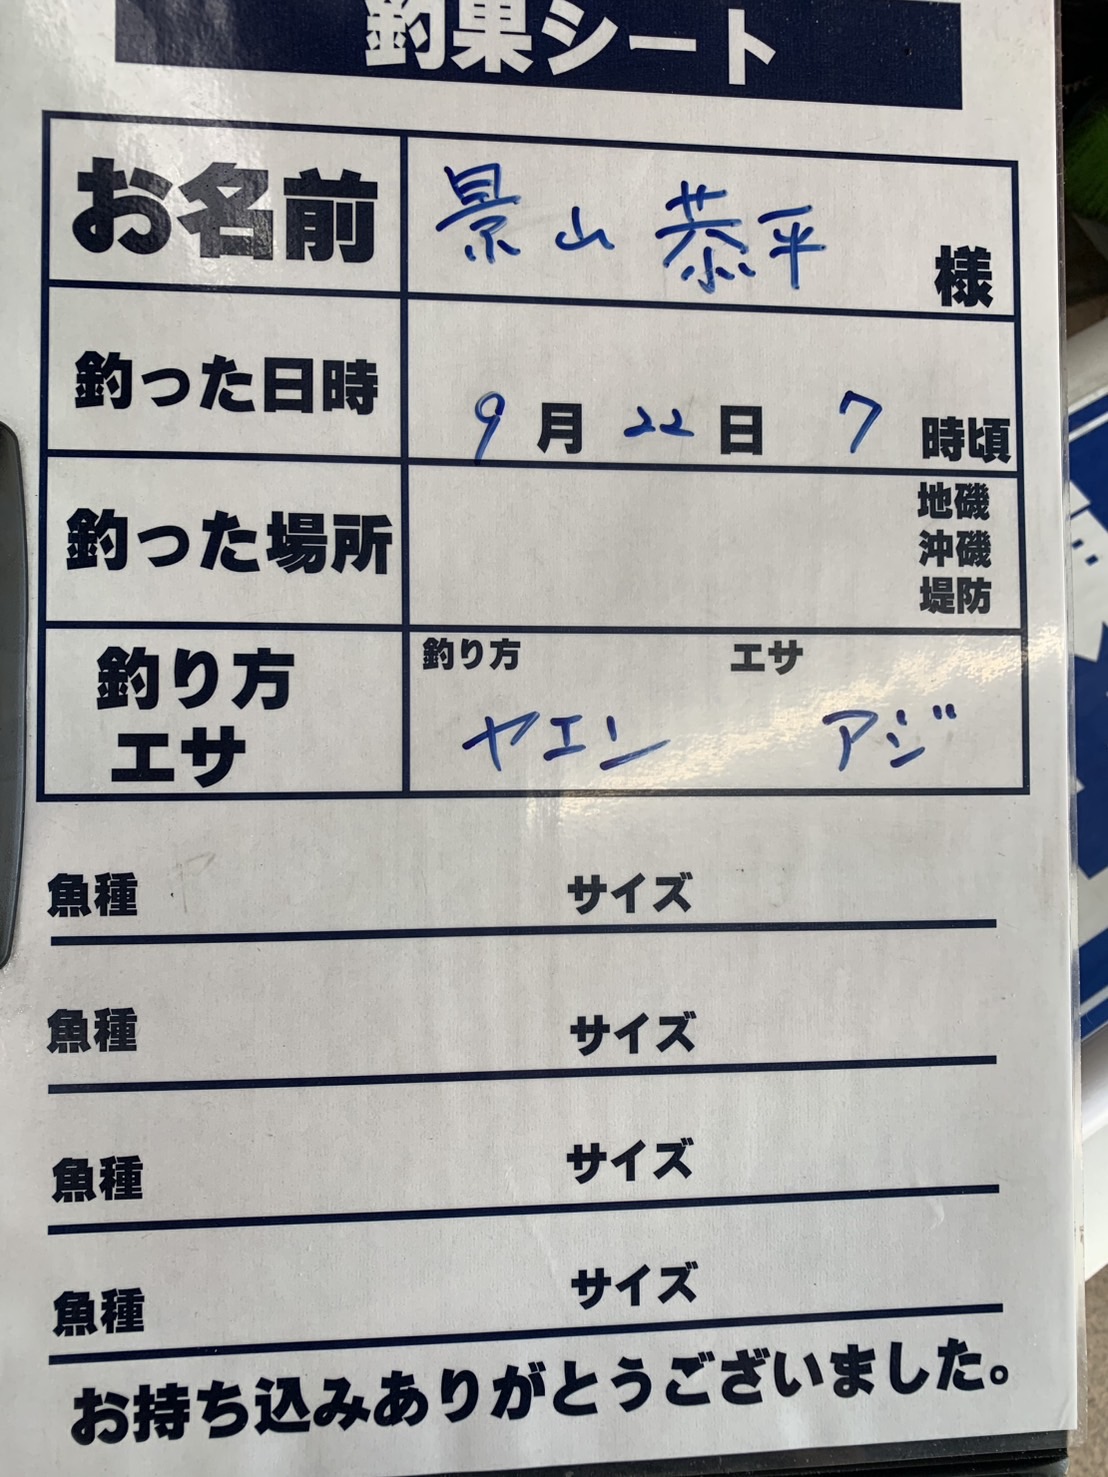 釣果シート
お名前 景山 恭平 様
釣った日時 9月22日 7時頃
釣った場所
地磯
沖磯
堤防
釣り方
エサ
釣り方 エサ
ヤエン アジ
魚種 サイズ
魚種 サイズ
魚種 サイズ
魚種 サイズ
お持ち込みありがとうございました。